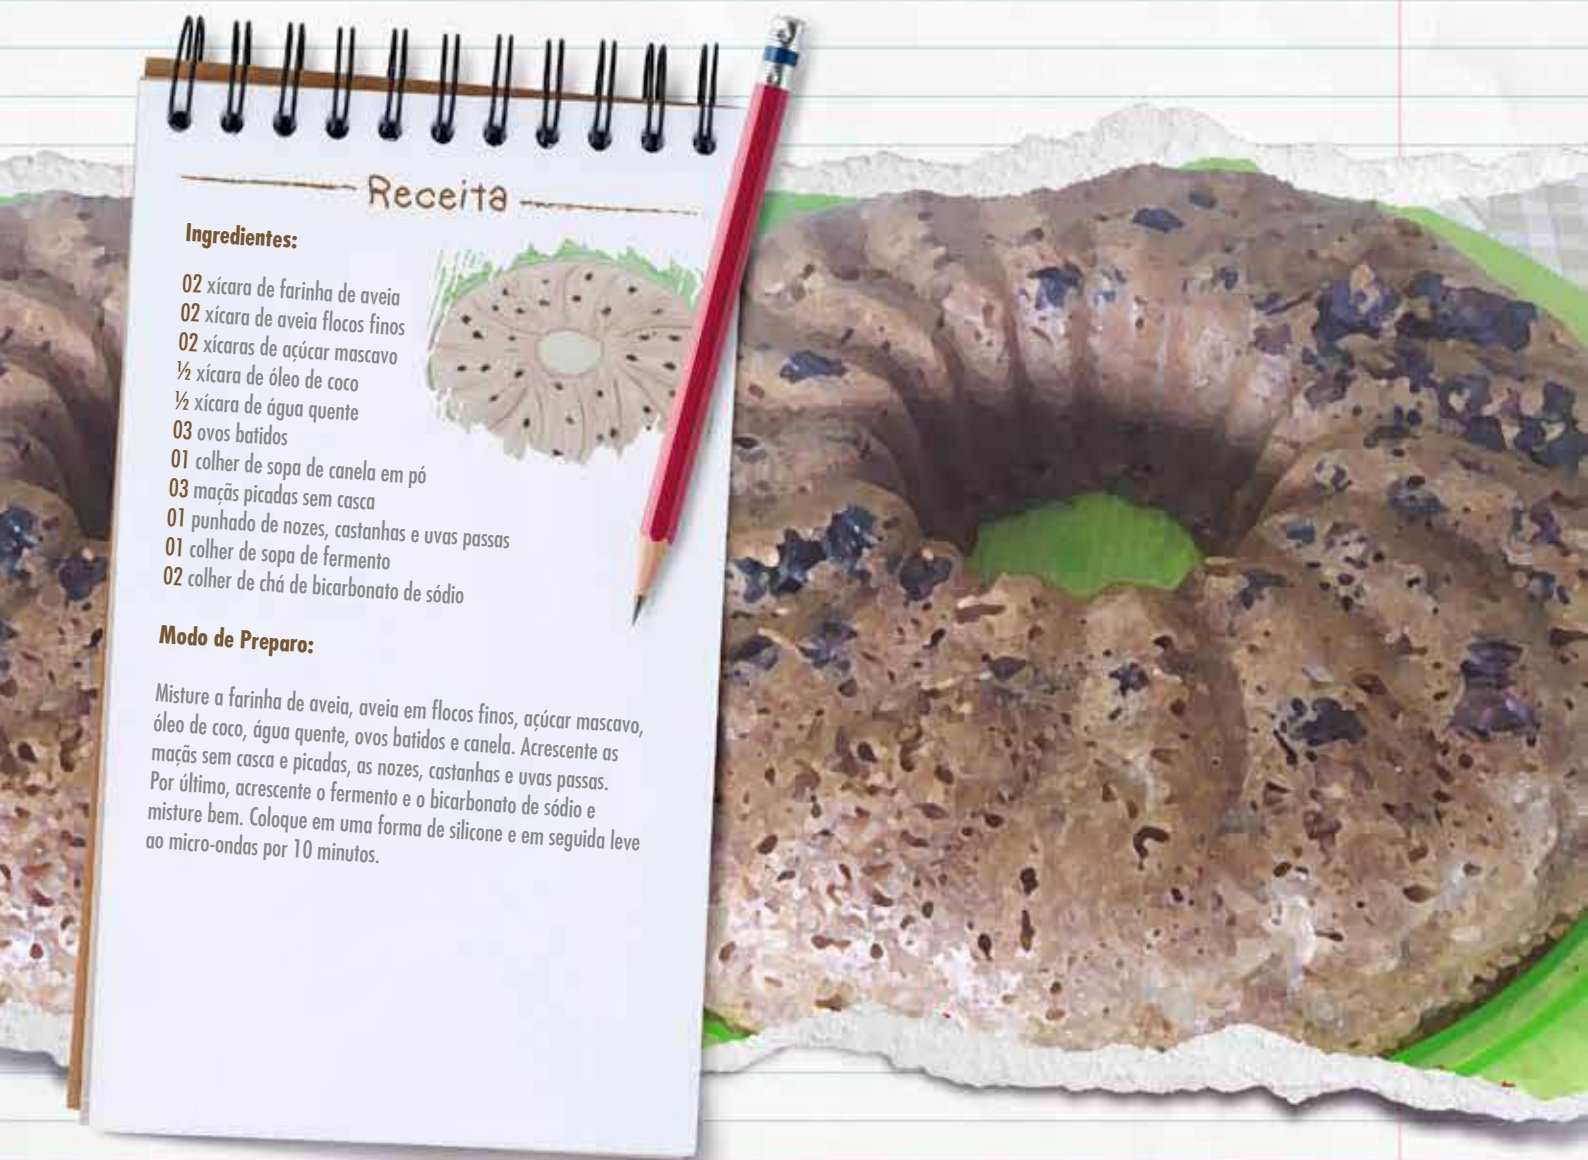 Receita
Ingredientes:
02 xícara de farinha de aveia
02 xícara de aveia flocos finos
02 xícaras de açúcar mascavo
½ xícara de óleo de coco
½ xícara de água quente
03 ovos batidos
01 colher de sopa de canela em pó
03 maçãs picadas sem casca
01 punhado de nozes, castanhas e uvas passas
01 colher de sopa de fermento
02 colher de chá de bicarbonato de sódio
Modo de Preparo:
Misture a farinha de aveia, aveia em flocos finos, açúcar mascavo,
óleo de coco, água quente, ovos batidos e canela. Acrescente as
maçãs sem casca e picadas, as nozes, castanhas e uvas passas.
Por último, acrescente o fermento e o bicarbonato de sódio e
misture bem. Coloque em uma forma de silicone e em seguida leve
ao micro-ondas por 10 minutos.